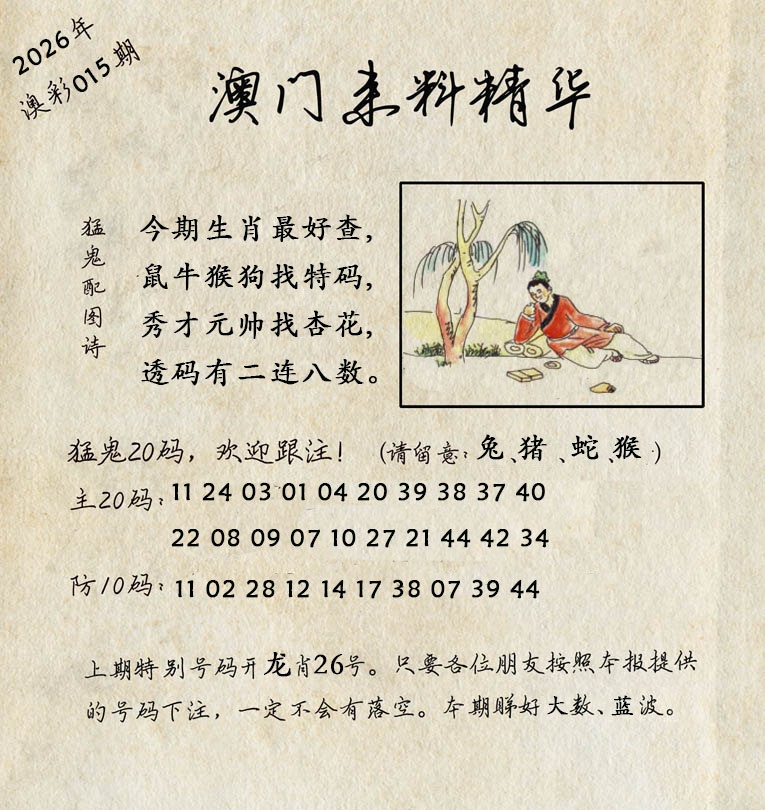 2026年
澳彩015期
澳门来料精华
猛鬼配图诗
今期生肖最好查，
鼠牛猴狗找特码，
秀才元帅找杏花，
透码有二连八数。
猛鬼20码，欢迎跟注！（请留意：兔、猪、蛇、猴）
主20码：11 24 03 01 04 20 39 38 37 40
22 08 09 07 10 27 21 44 42 34
防10码：11 02 28 12 14 17 38 07 39 44
上期特别号码开龙肖26号。只要各位朋友按照本报提供
的号码下注，一定不会有落空。本期睇好大数、蓝波。